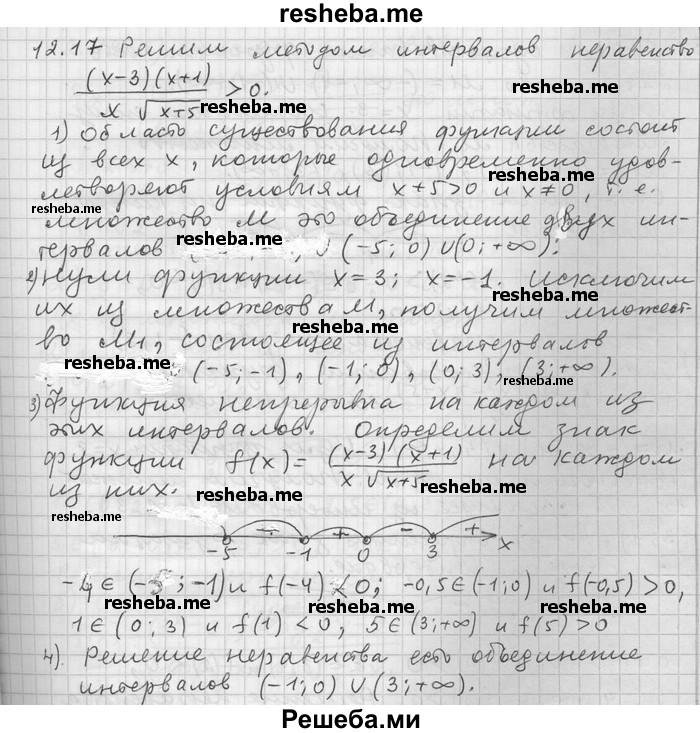 resheba.me
12.17 Решим методом интервалов неравенство
(x-3)(x+1)
x √x+5 > 0.
resheba.me
1) Область существования функции состоит
resheba.me
из всех x, которые одновременно удов-
resheba.me
летворяют условиям x+5>0 и x≠0, т. е.
resheba.me
множество M это объединение двух ин-
тервалов resheba.me ∪ (-5; 0) ∪ (0; +∞);
2) Нули функции x=3; x=-1. Исключим
их из множества M, получим множест-
resheba.me
во M1, состоящее из интервалов
resheba.me
(-5; -1), (-1; 0), (0; 3), (3; +∞).
resheba.me
3) Функция непрерывна на каждом из
этих интервалов. Определим знак
resheba.me
функции f(x) = (x-3)(x+1) / x √x+5 на каждом
resheba.me
из них. resheba.me
resheba.me
- + - +
-5 -1 0 3 x
resheba.me
-4 ∈ (-5; -1) и f(-4) < 0; -0,5 ∈ (-1; 0) и f(-0,5) > 0,
resheba.me resheba.me
1 ∈ (0; 3) и f(1) < 0, 5 ∈ (3; +∞) и f(5) > 0
4). Решение неравенства есть объединение
resheba.me
интервалов (-1; 0) ∪ (3; +∞).
resheba.me
Решеба.ми